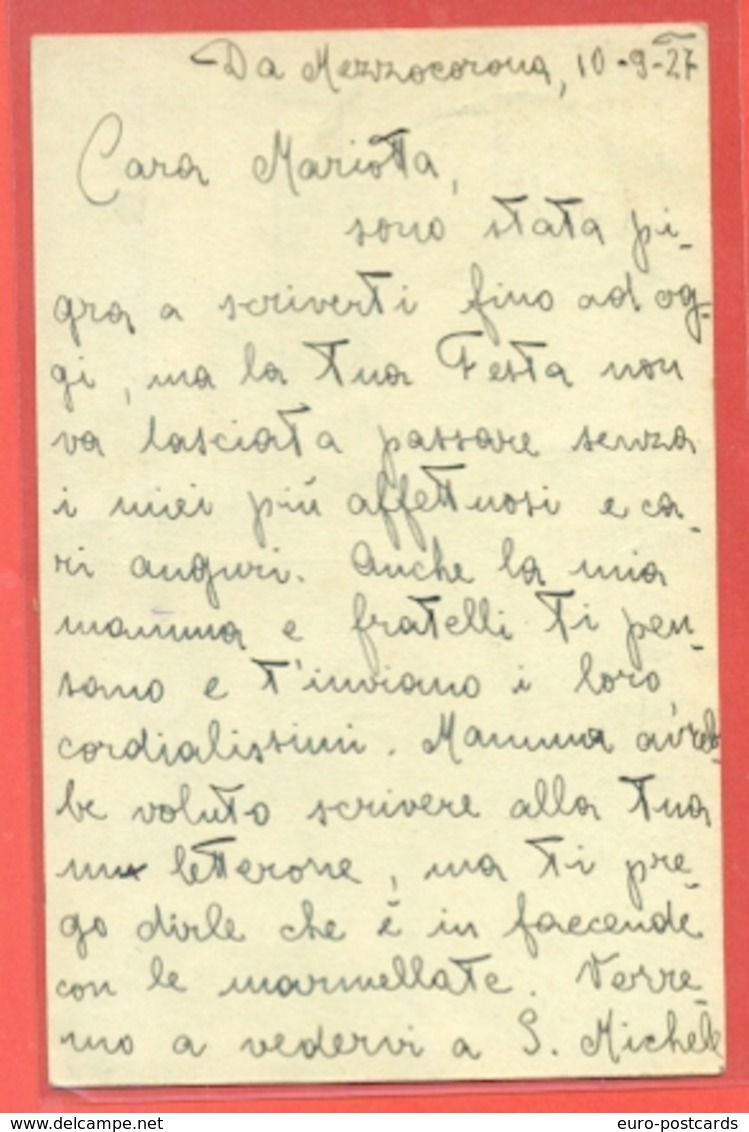 Da Mezzocorona, 10-9-27
Cara Mariotta,
sono stata pi-
gra a scriverti fino ad og-
gi, ma la tua Festa non
va lasciata passare senza
i miei più affettuosi e ca-
ri auguri. Anche la mia
mamma e fratelli ti pen-
sano e t'inviano i loro
cordialissimi. Mamma avreb-
be voluto scrivere alla tua
un letterone, ma ti pre-
go dirle che è in faccende
con le marmellate. Verre-
mo a vedervi a S. Michele
www.delcampe.net
euro-postcards